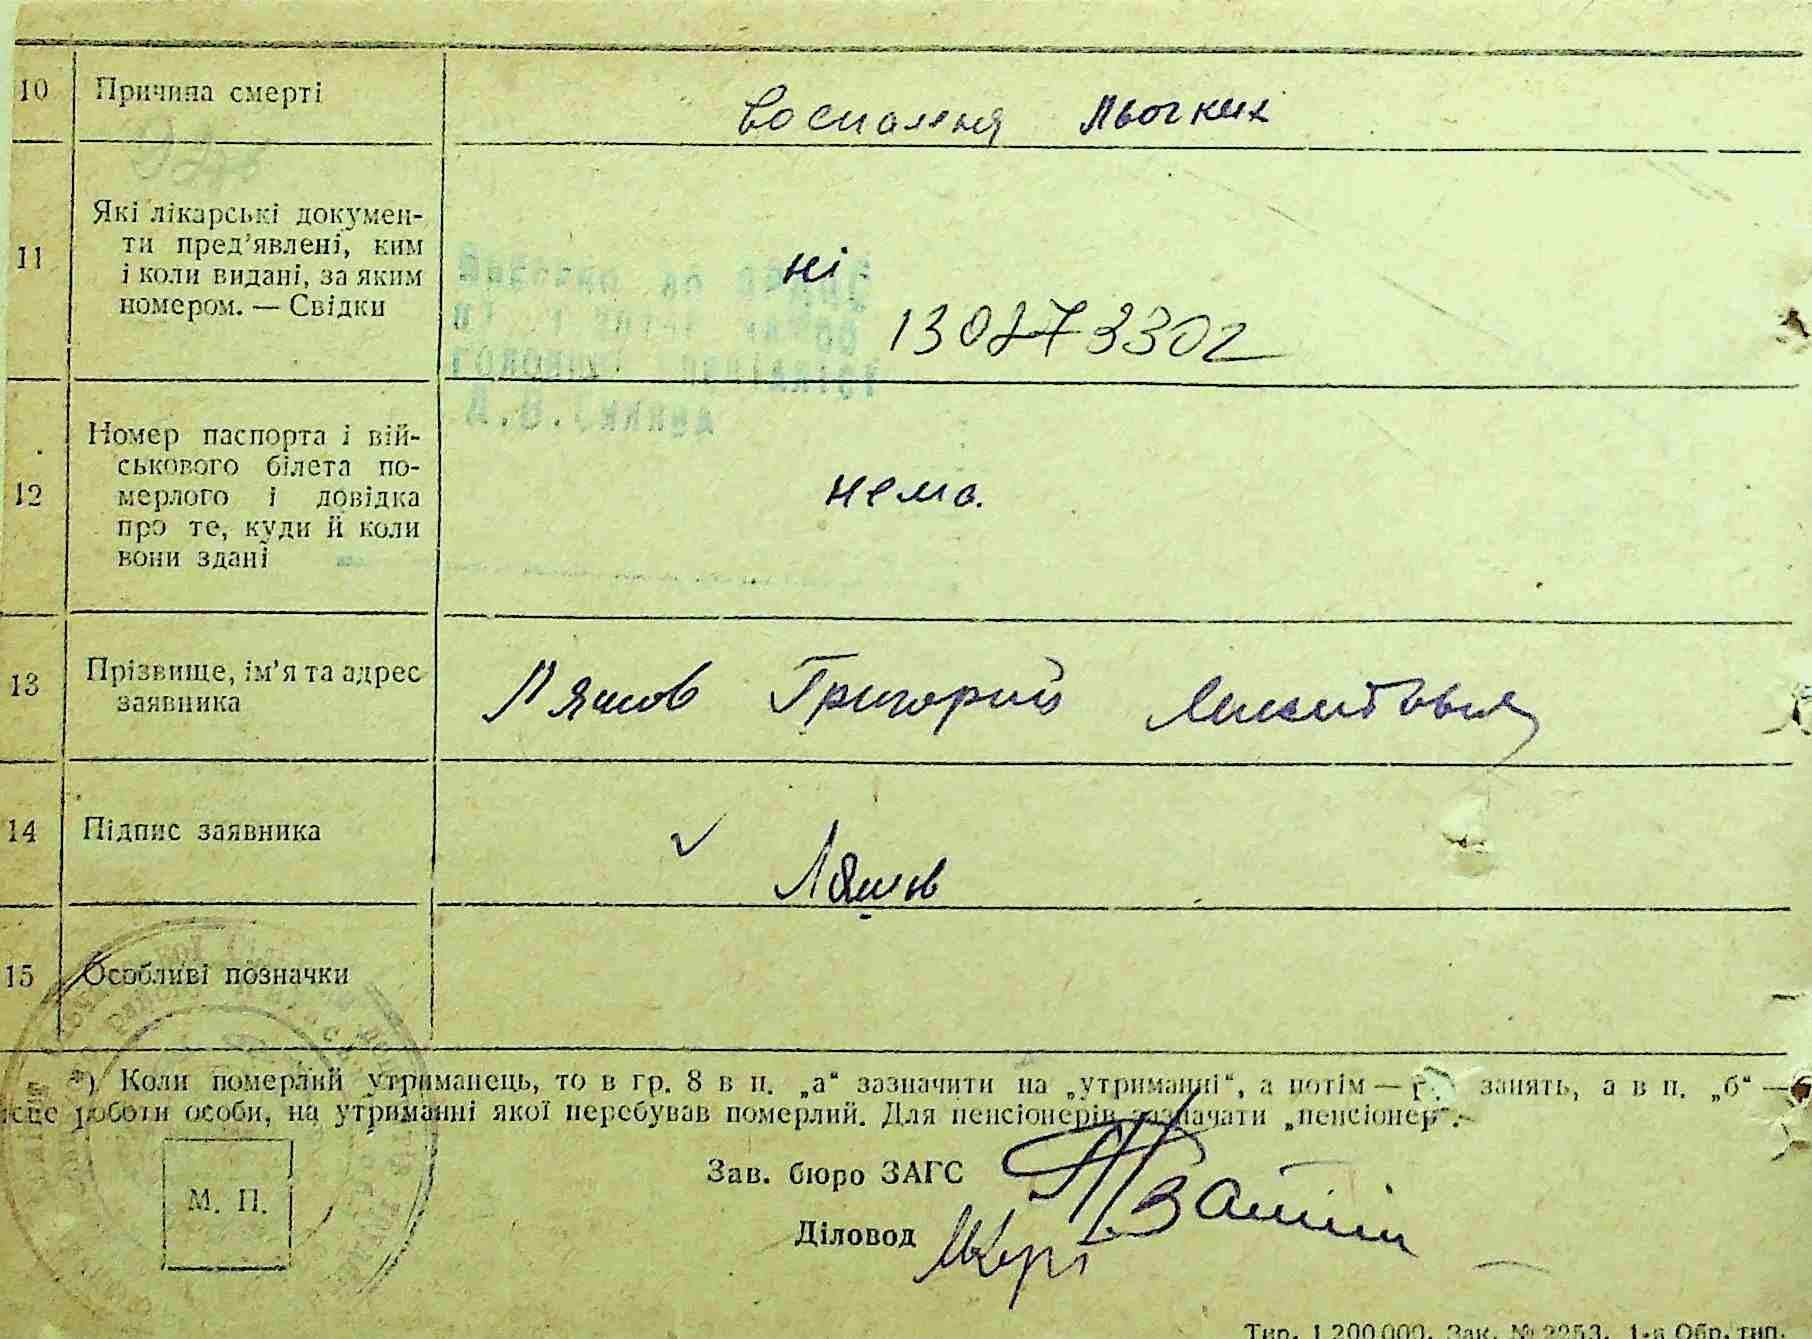 10 Причина смерті воспаленя льогких
11 Які лікарські докумен-
ти пред'явлені, ким
і коли видані, за яким
номером. — Свідки
ні
130273302
12 Номер паспорта і вій-
ськового білета по-
мерлого і довідка
про те, куди й коли
вони здані
нема.
13 Прізвище, ім'я та адрес
заявника
Ляшов Григорий
14 Підпис заявника
Ляшов
15 Особливі позначки
*) Коли померлий утриманець, то в гр. 8 в п. „а“ зазначити на „утриманні“, а потім — занять, а в п. „б“ —
роботи особи, на утриманні якої перебував померлий. Для пенсіонерів зазначати „пенсіонер“.
Зав. бюро ЗАГС
М. П.
Діловод
Тир. 1 200 000. Зак. № 2253. 1-а Обр. тип.